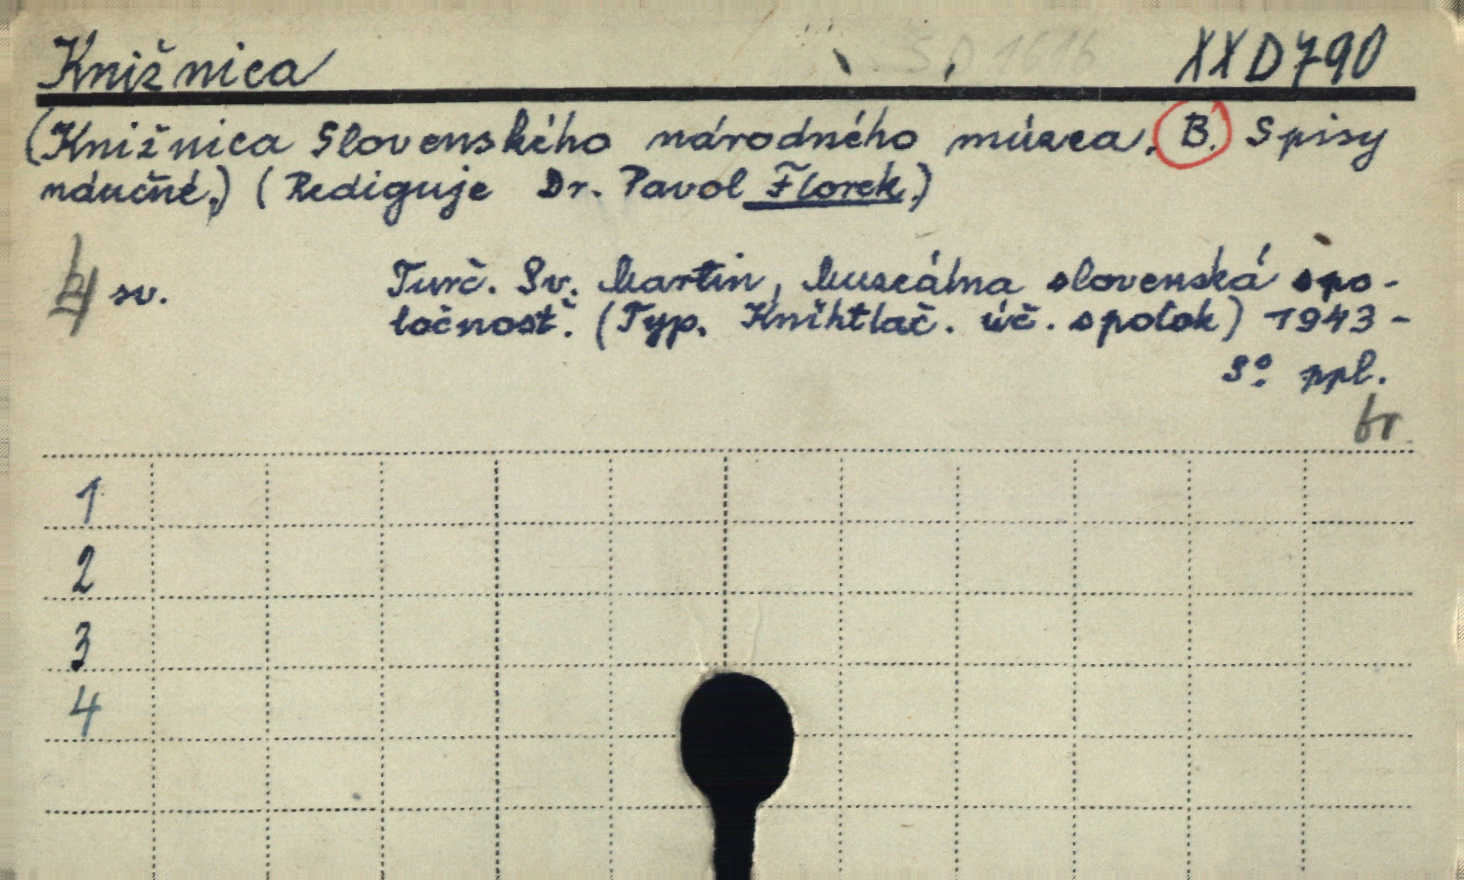 Knižnica SD 1616 XXD790
(Knižnica Slovenského národného múzea. B. Spisy
náučné.) (Rediguje Dr. Pavol Florek.)
4 sv. Turč. Sv. Martin, Museálna slovenská spo-
ločnosť. (Typ. Kníhtlač. úč. spolok) 1943-
8°. ppl.
br.
1
2
3
4